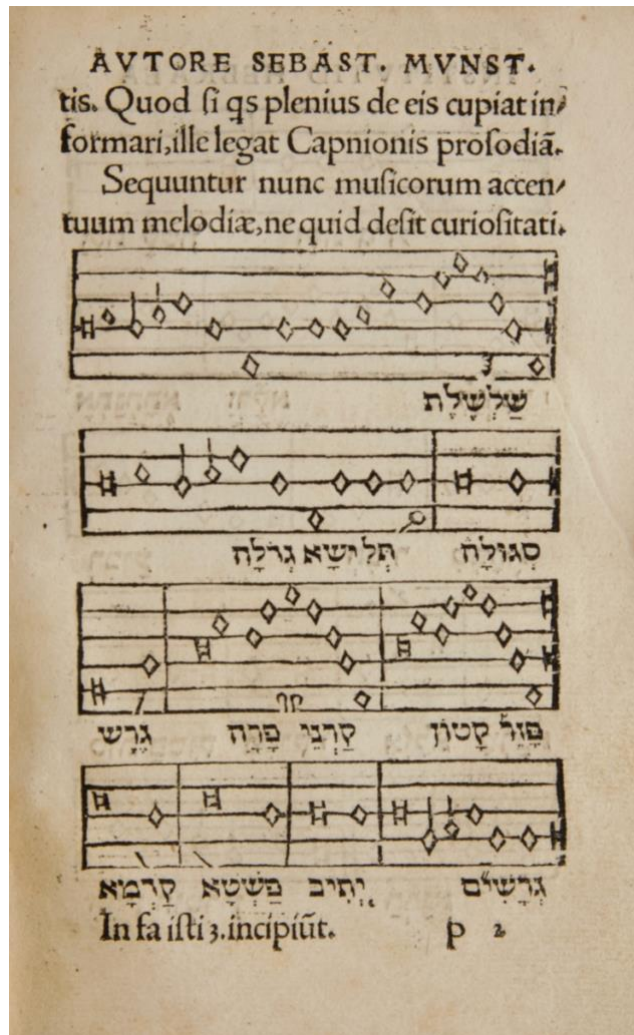 AVTORE SEBAST. MVNST.
tis. Quod si qs plenius de eis cupiat in⸗
formari, ille legat Capnionis prosodiā.
Sequuntur nunc musicorum accen⸗
tuum melodiæ, ne quid desit curiositati.
שַׁלְשֶׁלֶת
סְגוּלָה תְּלִישָׁא גְרֹלָה
פָּזֵר קָטוֹן קַרְנֵי פָּרָה גֶּרֶשׁ
גְּרָשַׁיִם יְתִיב פַּשְׁטָא קַדְמָא
In fa isti 3. incipiūt. p 2